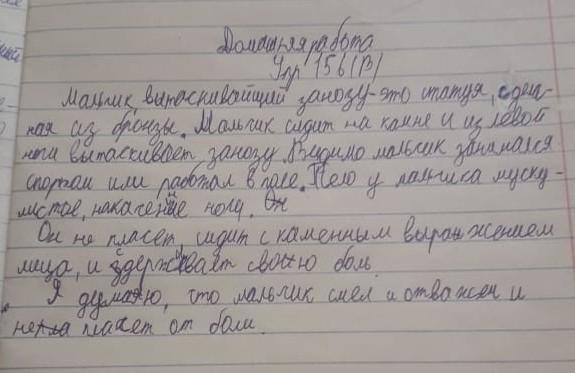 Домашняя работа
Упр 156(В)
Мальчик, вытаскивайщий занозу-это статуя, сдела-
ная из бронзы. Мальчик сидит на камне и из левой
ноги вытаскивает занозу. Видимо мальчик занимался
спортом или работал в поле. Тело у мальчика муску-
листое, накаченые ногу. Он
Он не плачет, сидит с каменным выражением
лица, и здерживает свою боль.
Я думаю, что мальчик смел и отважен и
не плачет от боли.